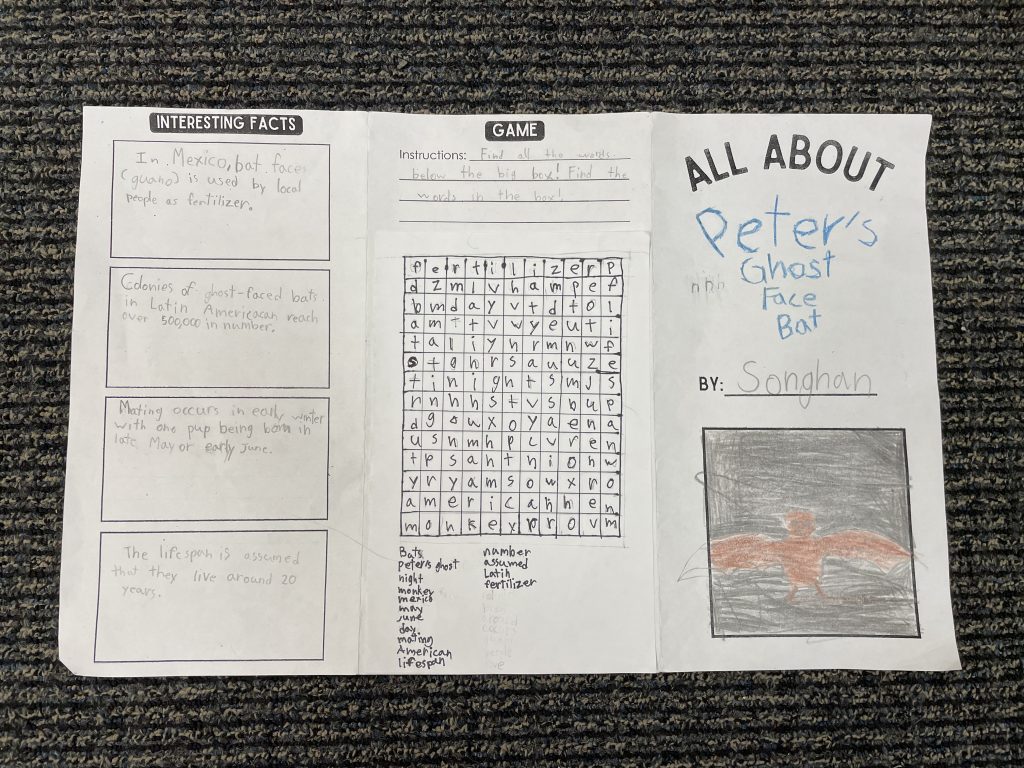 INTERESTING FACTS
In Mexico, bat faces
(guano) is used by local
people as fertilizer.
Colonies of ghost-faced bats
in Latin Americacan reach
over 500,000 in number.
Mating occurs in early winter
with one pup being born in
late May or early June.
The lifespan is assumed
that they live around 20
years.
GAME
Instructions: Find all the words
below the big box! Find the
words in the box!
f e r t i l i z e r p
d z m l v h a m p e f
b m d a y v t d t o l
a m t t v w y e u t i
t a l i y h r m n w f
s t g h r s a u u z e
t i n i g h t s m j s
r n h h s t v s b u p
d g o w x o y a e n a
u s n m h p c v r e n
t p s a n t n i o h w
y r y a m s o w x r o
a m e r i c a n h e n
m o n k e x p r o v m
Bats
peter's ghost
night
monkey
mexico
may
june
day
mating
American
lifespan
number
assumed
Latin
fertilizer
ALL ABOUT
Peter's
Ghost
Face
Bat
BY: Songhan